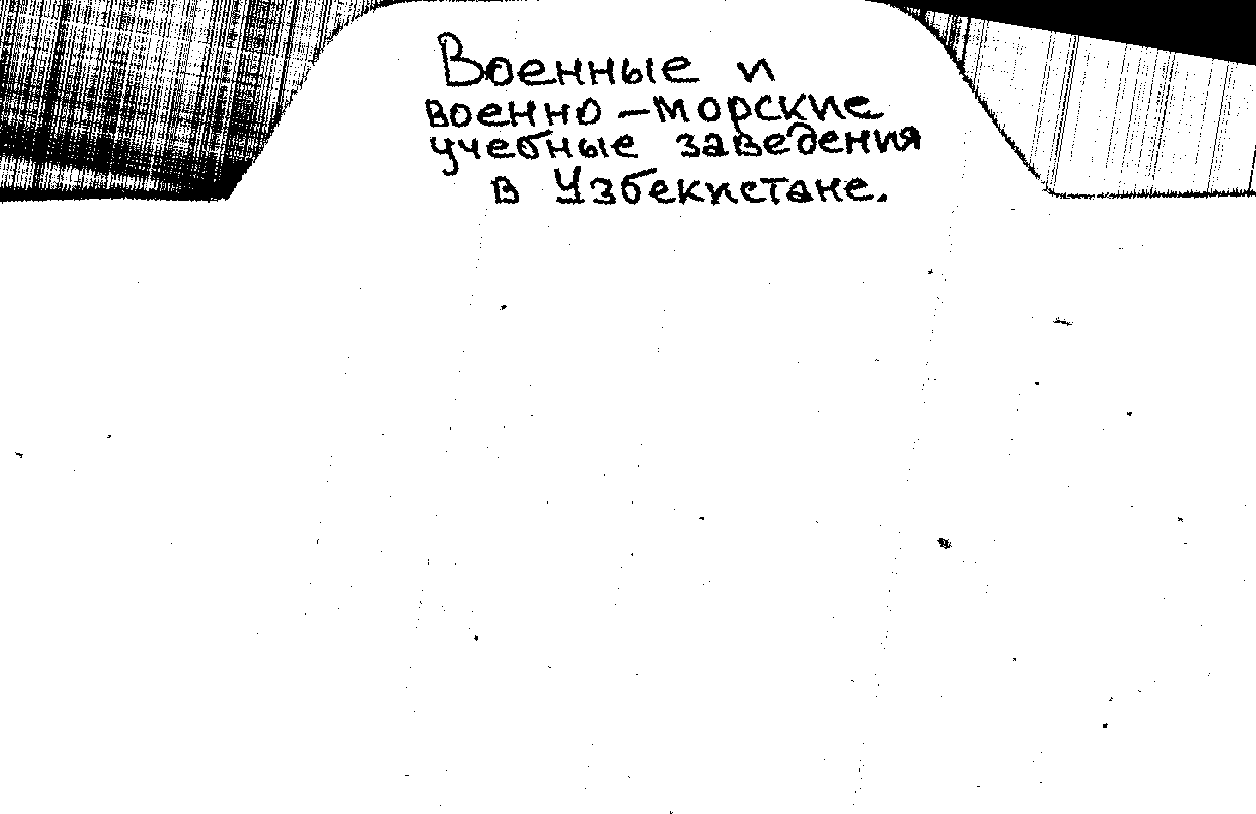 Военные и
военно-морские
учебные заведения
в Узбекистане.